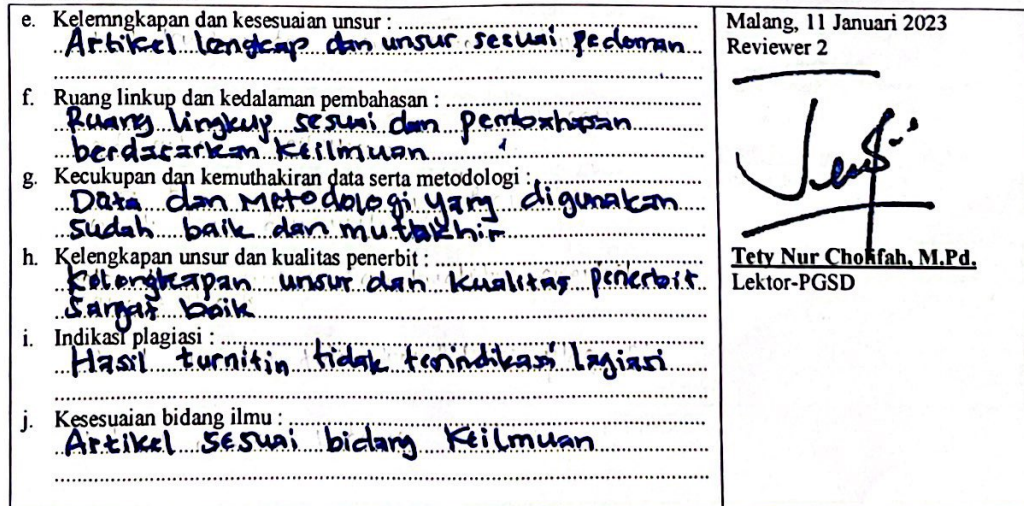 e. Kelemngkapan dan kesesuaian unsur :
Artikel lengkap dan unsur sesuai pedoman
f. Ruang linkup dan kedalaman pembahasan :
Ruang lingkup sesuai dan pembahasan
berdasarkan keilmuan
g. Kecukupan dan kemuthakiran data serta metodologi :
Data dan Metodologi yang digunakan
sudah baik dan mutakhir
h. Kelengkapan unsur dan kualitas penerbit :
Kelengkapan unsur dan kualitas penerbit
sangat baik
i. Indikasi plagiasi :
Hasil turnitin tidak terindikasi lagiasi
j. Kesesuaian bidang ilmu :
Artikel sesuai bidang keilmuan
Malang, 11 Januari 2023
Reviewer 2
Tety Nur Cholifah, M.Pd.
Lektor-PGSD